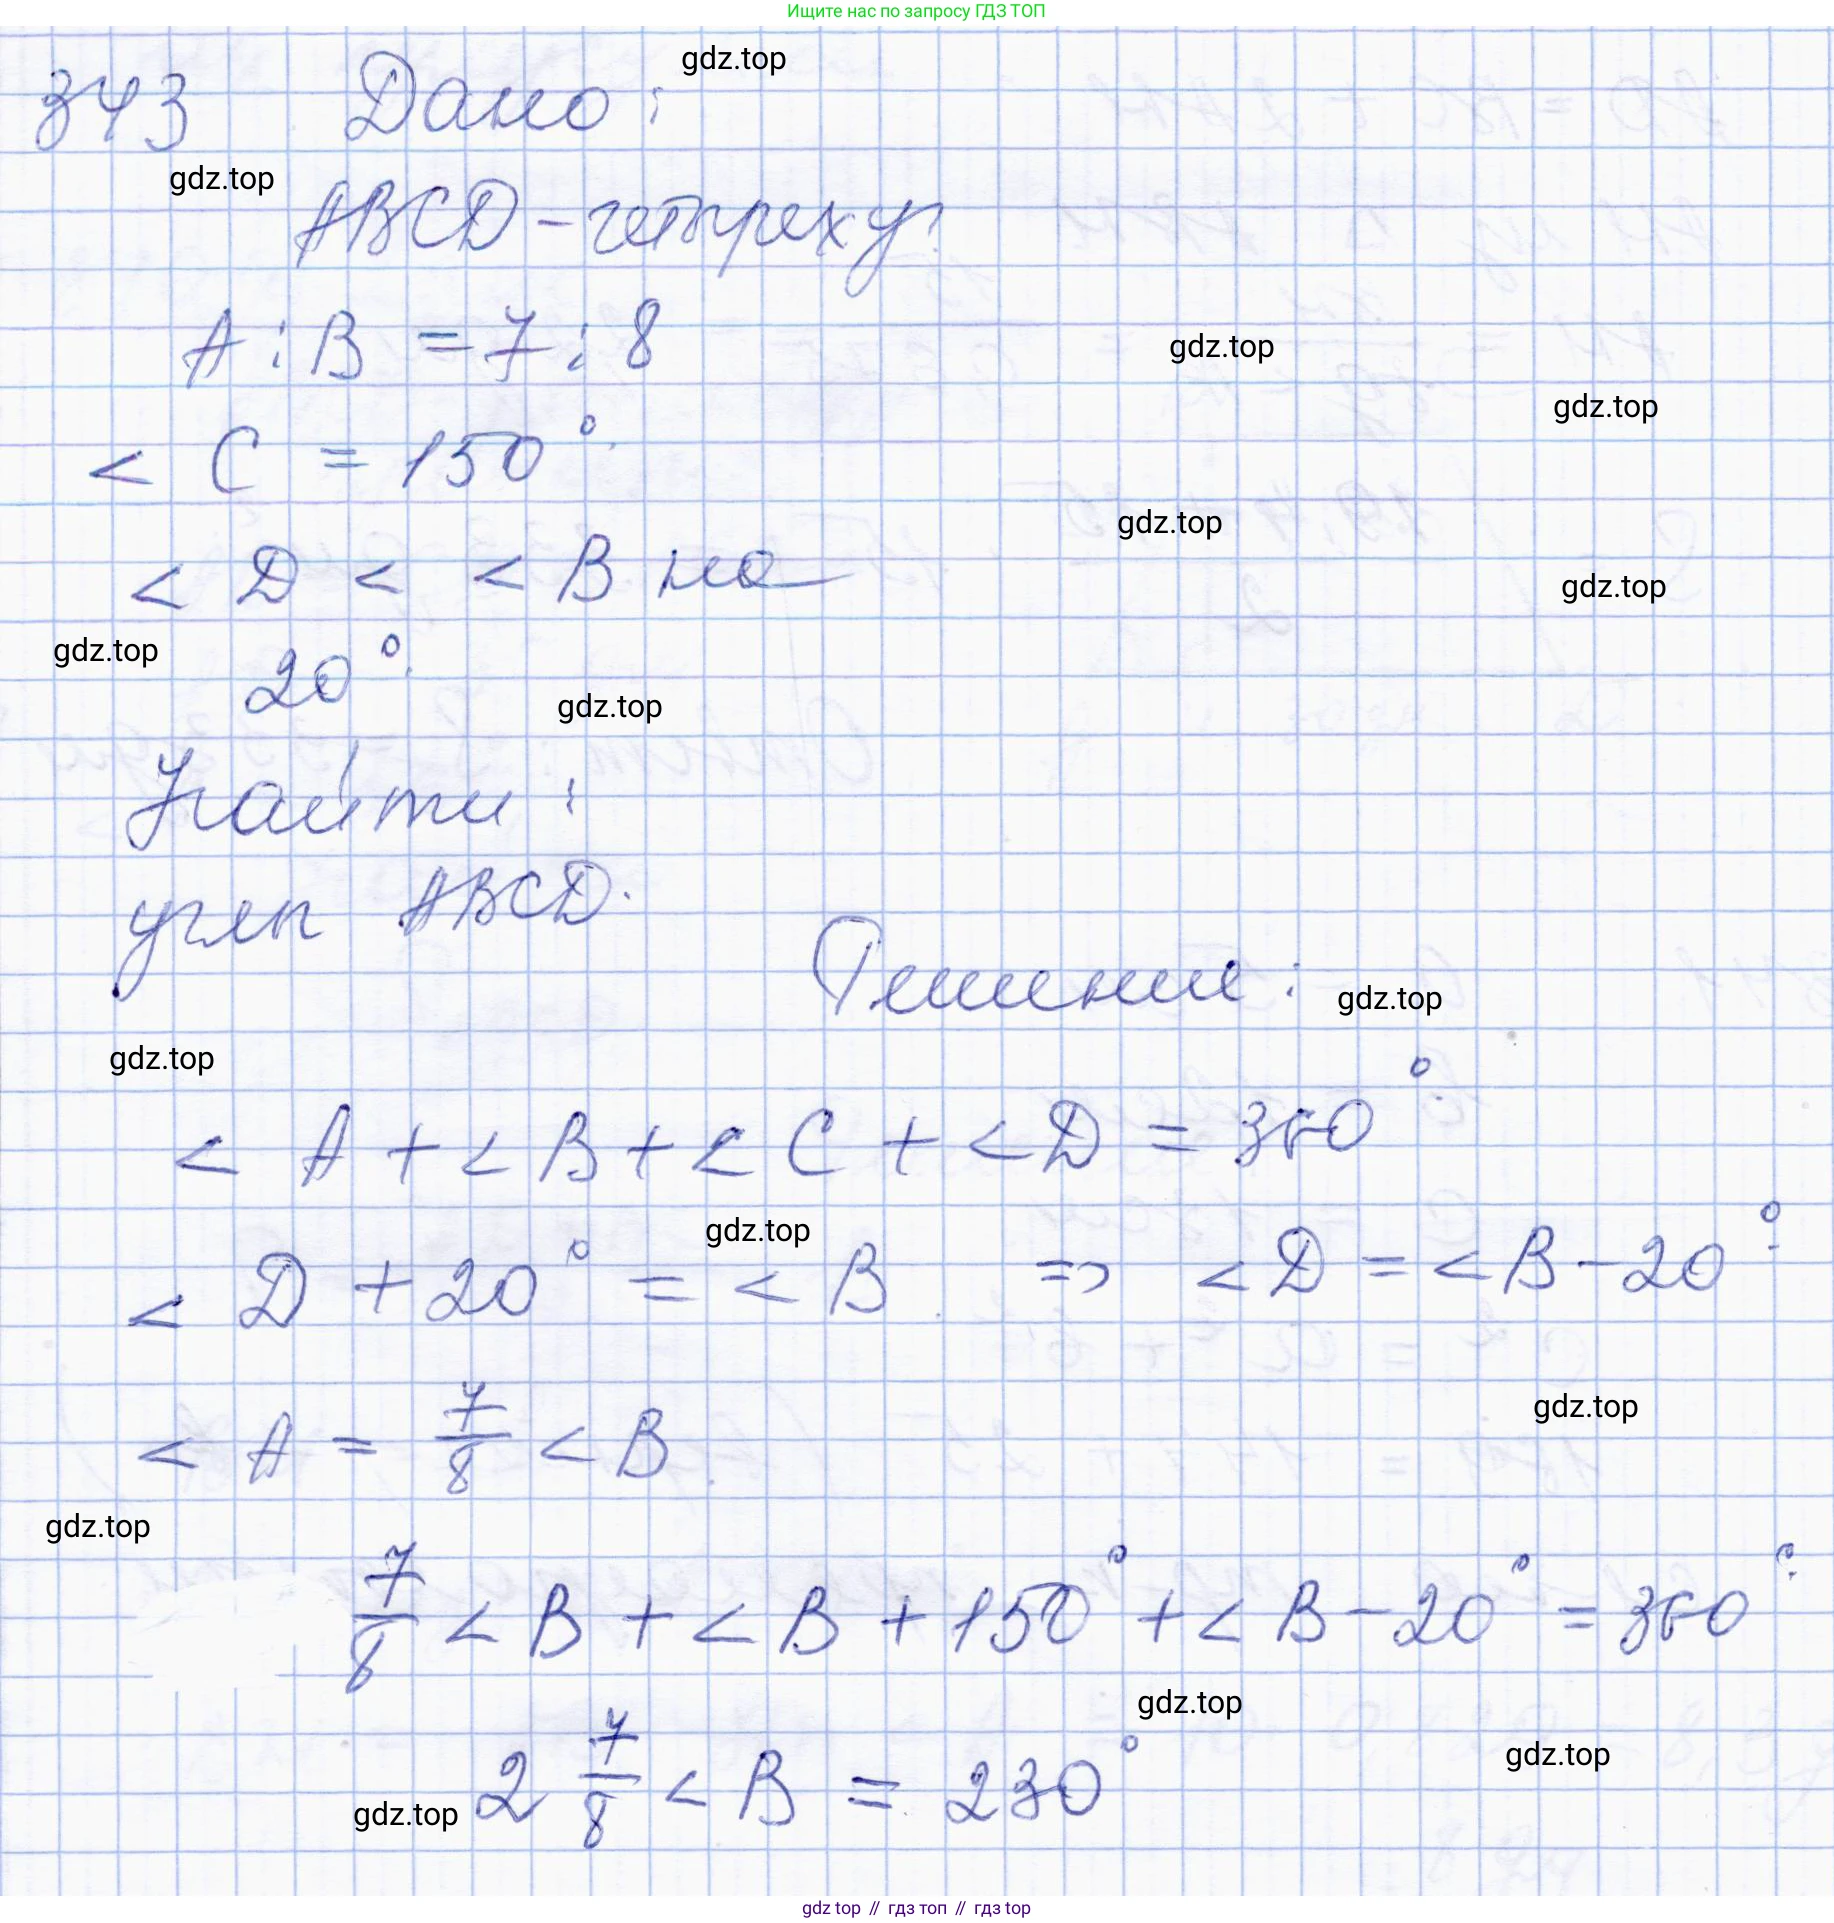 Ищите нас по запросу ГДЗ ТОП
gdz.top
343 Дано:
gdz.top
ABCD - четыреху.
A : B = 7 : 8
gdz.top
gdz.top
< C = 150°.
gdz.top
< D < < B на
gdz.top
gdz.top
20°.
gdz.top
Найти:
углы ABCD.
Решение:
gdz.top
gdz.top
< A + < B + < C + < D = 360°.
gdz.top
< D + 20° = < B. => < D = < B - 20°.
gdz.top
< A = 7/8 < B.
gdz.top
7/8 < B + < B + 150° + < B - 20° = 360°.
gdz.top
gdz.top
2 7/8 < B = 230°
gdz.top
gdz top // гдз топ // гдз top